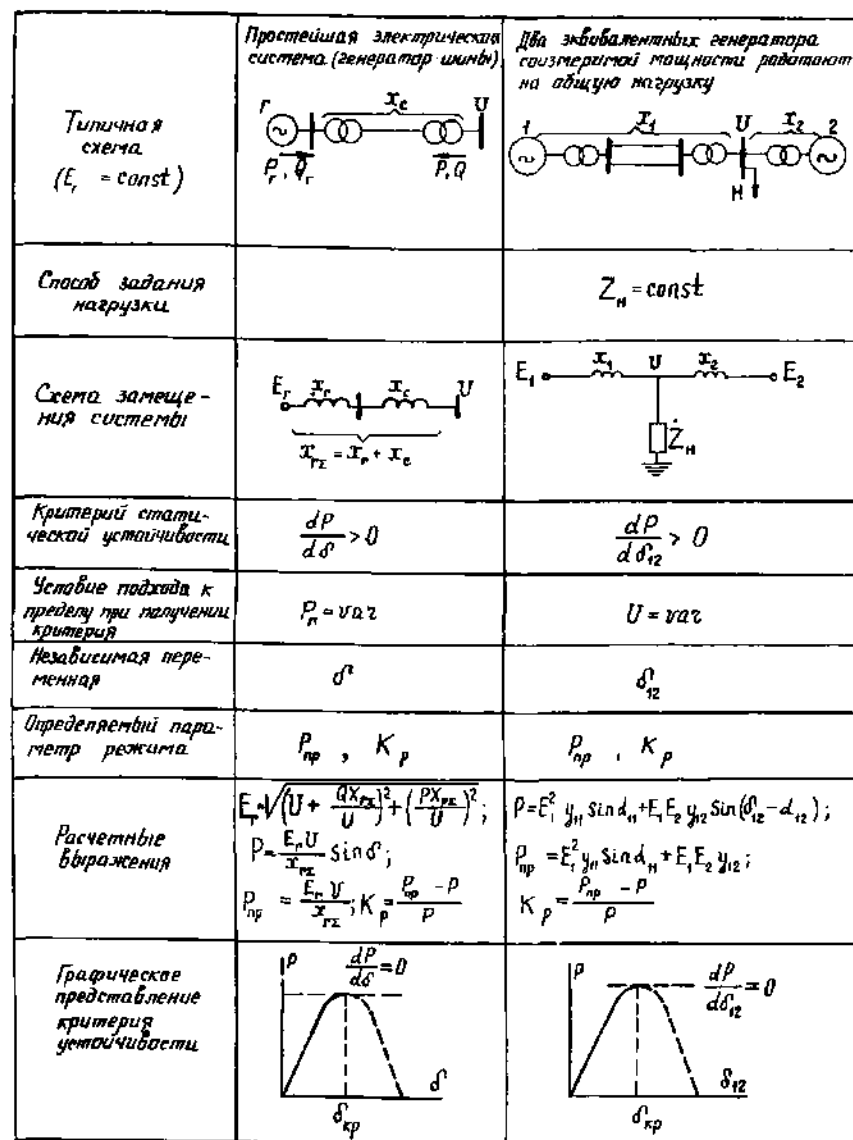 Простейшая электрическая
система (генератор-шины)
Два эквивалентных генератора
соизмеримой мощности работают
на общую нагрузку
Типичная
схема
(E_г = const)
Г x_c U
P_г, Q_г P, Q
1 x_1 U x_2 2
H
Способ задания
нагрузки
Z_н = const
Схема замеще-
ния системы
E_г x_г x_c U
x_гΣ = x_г + x_c
E_1 x_1 U x_2 E_2
Ż_н
Критерий стати-
ческой устойчивости
dP/dδ > 0
dP/dδ_12 > 0
Условие подхода к
пределу при получении
критерия
P_г = var
U = var
Независимая пере-
менная
δ
δ_12
Определяемый пара-
метр режима
P_пр , K_p
P_пр , K_p
Расчетные
выражения
E_г = √((U + QX_гΣ/U)² + (PX_гΣ/U)²) ;
P = E_г U/x_гΣ sin δ ;
P_пр = E_г U/x_гΣ ; K_p = (P_пр - P)/P
P = E_1² y_11 sin α_11 + E_1 E_2 y_12 sin(δ_12 - α_12) ;
P_пр = E_1² y_11 sin α_11 + E_1 E_2 y_12 ;
K_p = (P_пр - P)/P
Графическое
представление
критерия
устойчивости
P dP/dδ = 0
δ
δ_кр
P dP/dδ_12 = 0
δ_12
δ_кр